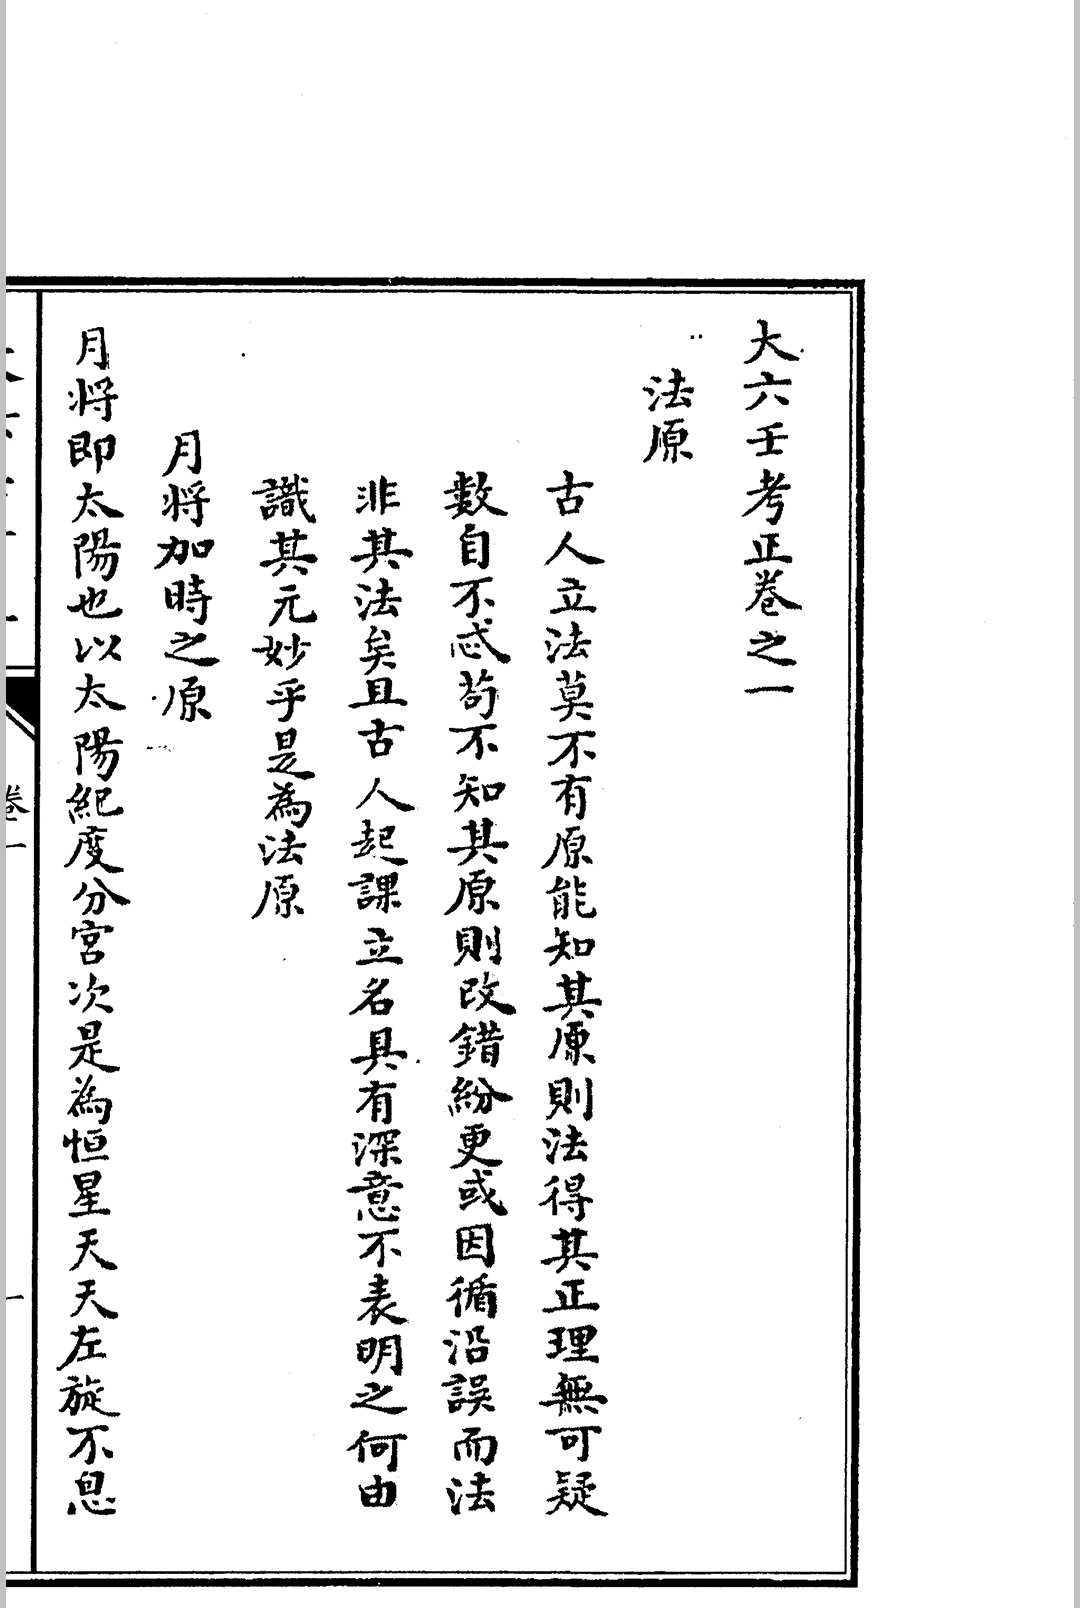 大六壬考正卷之一
法原
古人立法莫不有原能知其原則法得其正理無可疑
數自不忒茍不知其原則改錯紛更或因循沿誤而法
非其法矣且古人起課立名具有深意不表明之何由
識其元妙乎是為法原
月將加時之原
月將即太陽也以太陽紀度分宮次是為恒星天天左旋不息
卷一
一